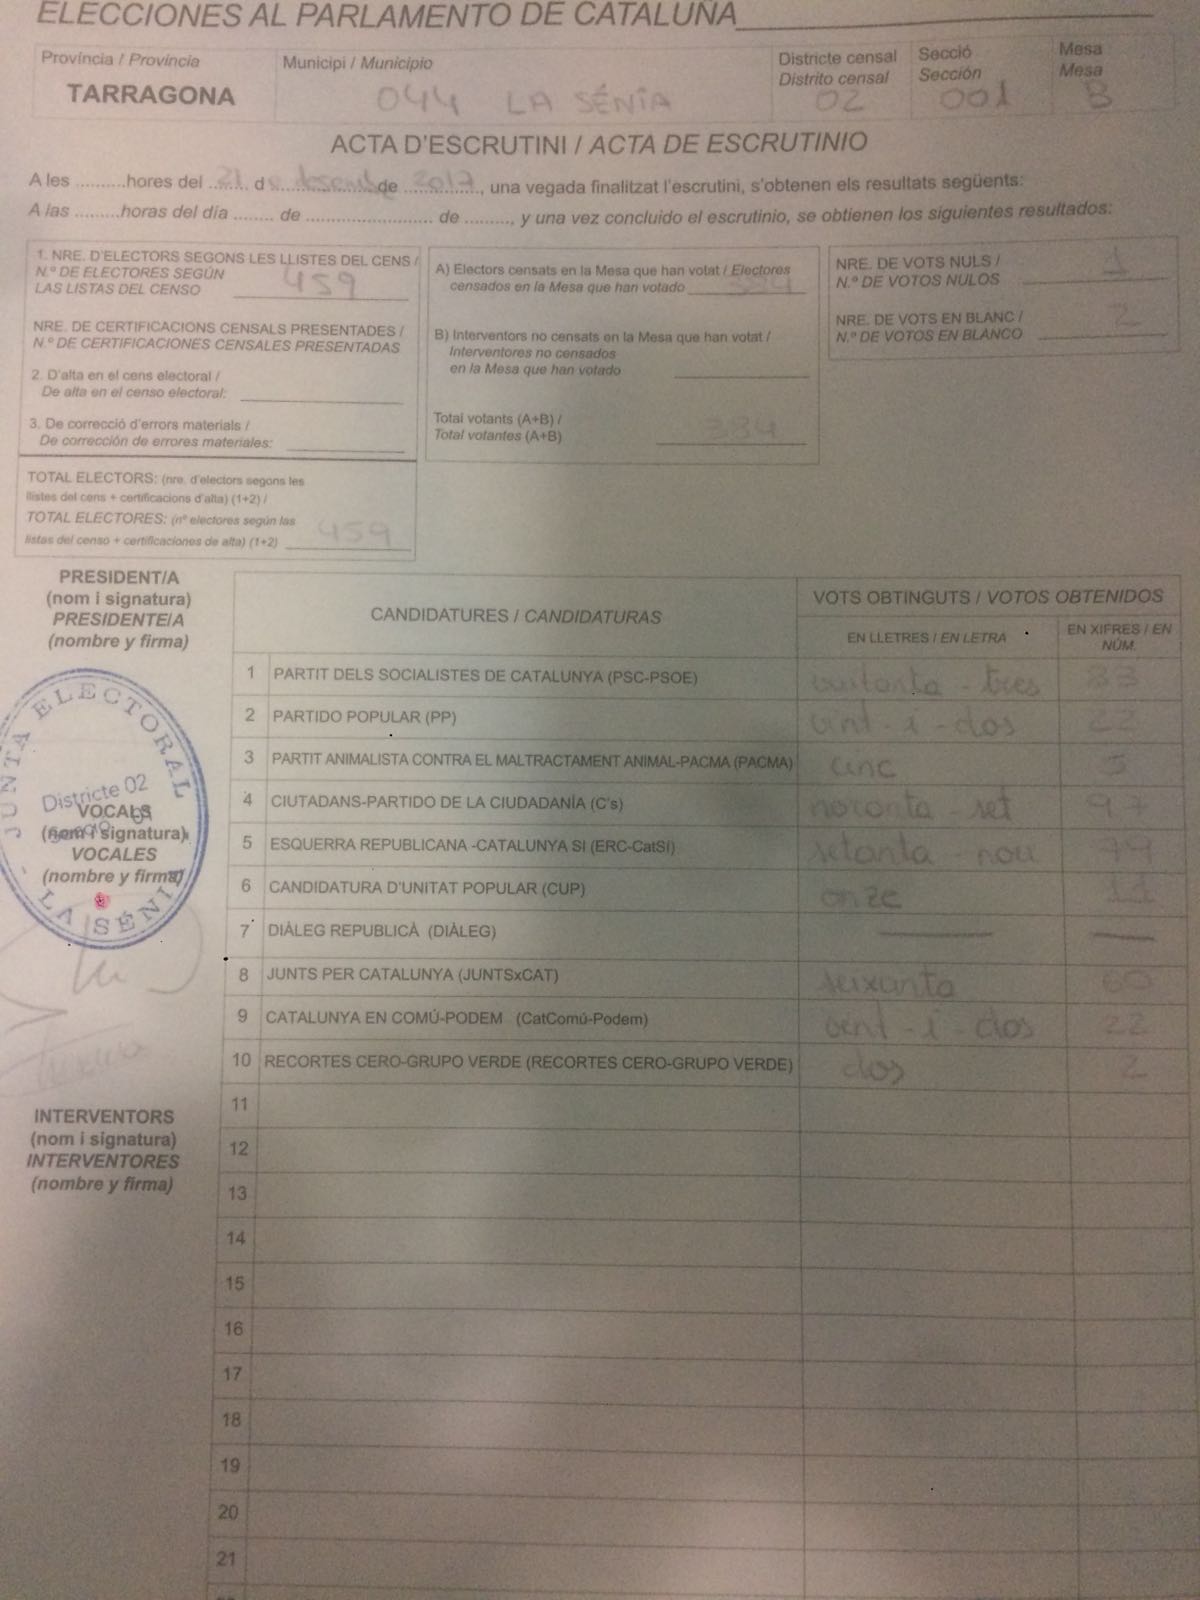 ELECCIONES AL PARLAMENTO DE CATALUÑA
Província / Provincia
TARRAGONA
Municipi / Municipio
044 LA SÉNIA
Districte censal
Distrito censal
02
Secció
Sección
001
Mesa
Mesa
B
ACTA D'ESCRUTINI / ACTA DE ESCRUTINIO
A les .........hores del 21 d desembre de 2017, una vegada finalitzat l'escrutini, s'obtenen els resultats següents:
A las .........horas del día ........ de ......................... de ........., y una vez concluido el escrutinio, se obtienen los siguientes resultados:
1. NRE. D'ELECTORS SEGONS LES LLISTES DEL CENS /
N.º DE ELECTORES SEGÚN
LAS LISTAS DEL CENSO 459
NRE. DE CERTIFICACIONS CENSALS PRESENTADES /
N.º DE CERTIFICACIONES CENSALES PRESENTADAS
2. D'alta en el cens electoral /
De alta en el censo electoral:
3. De correcció d'errors materials /
De corrección de errores materiales:
TOTAL ELECTORS: (nre. d'electors segons les
llistes del cens + certificacions d'alta) (1+2) /
TOTAL ELECTORES: (nº electores según las
listas del censo + certificaciones de alta) (1+2) 459
A) Electors censats en la Mesa que han votat / Electores
censados en la Mesa que han votado 384
B) Interventors no censats en la Mesa que han votat /
Interventores no censados
en la Mesa que han votado
Total votants (A+B) /
Total votantes (A+B) 384
NRE. DE VOTS NULS /
N.º DE VOTOS NULOS 1
NRE. DE VOTS EN BLANC /
N.º DE VOTOS EN BLANCO 2
PRESIDENT/A
(nom i signatura)
PRESIDENTE/A
(nombre y firma)
JUNTA ELECTORAL
Districte 02
LA SÉNIA
VOCALS
(nom i signatura)
VOCALES
(nombre y firma)
INTERVENTORS
(nom i signatura)
INTERVENTORES
(nombre y firma)
CANDIDATURES / CANDIDATURAS
VOTS OBTINGUTS / VOTOS OBTENIDOS
EN LLETRES / EN LETRA
EN XIFRES / EN
NÚM.
1 PARTIT DELS SOCIALISTES DE CATALUNYA (PSC-PSOE) vuitanta - tres 83
2 PARTIDO POPULAR (PP) vint - i - dos 22
3 PARTIT ANIMALISTA CONTRA EL MALTRACTAMENT ANIMAL-PACMA (PACMA) cinc 5
4 CIUTADANS-PARTIDO DE LA CIUDADANÍA (C's) noranta - set 97
5 ESQUERRA REPUBLICANA -CATALUNYA SI (ERC-CatSí) setanta - nou 79
6 CANDIDATURA D'UNITAT POPULAR (CUP) onze 11
7 DIÀLEG REPUBLICÀ (DIÀLEG) — —
8 JUNTS PER CATALUNYA (JUNTSxCAT) seixanta 60
9 CATALUNYA EN COMÚ-PODEM (CatComú-Podem) vint - i - dos 22
10 RECORTES CERO-GRUPO VERDE (RECORTES CERO-GRUPO VERDE) dos 2
11
12
13
14
15
16
17
18
19
20
21